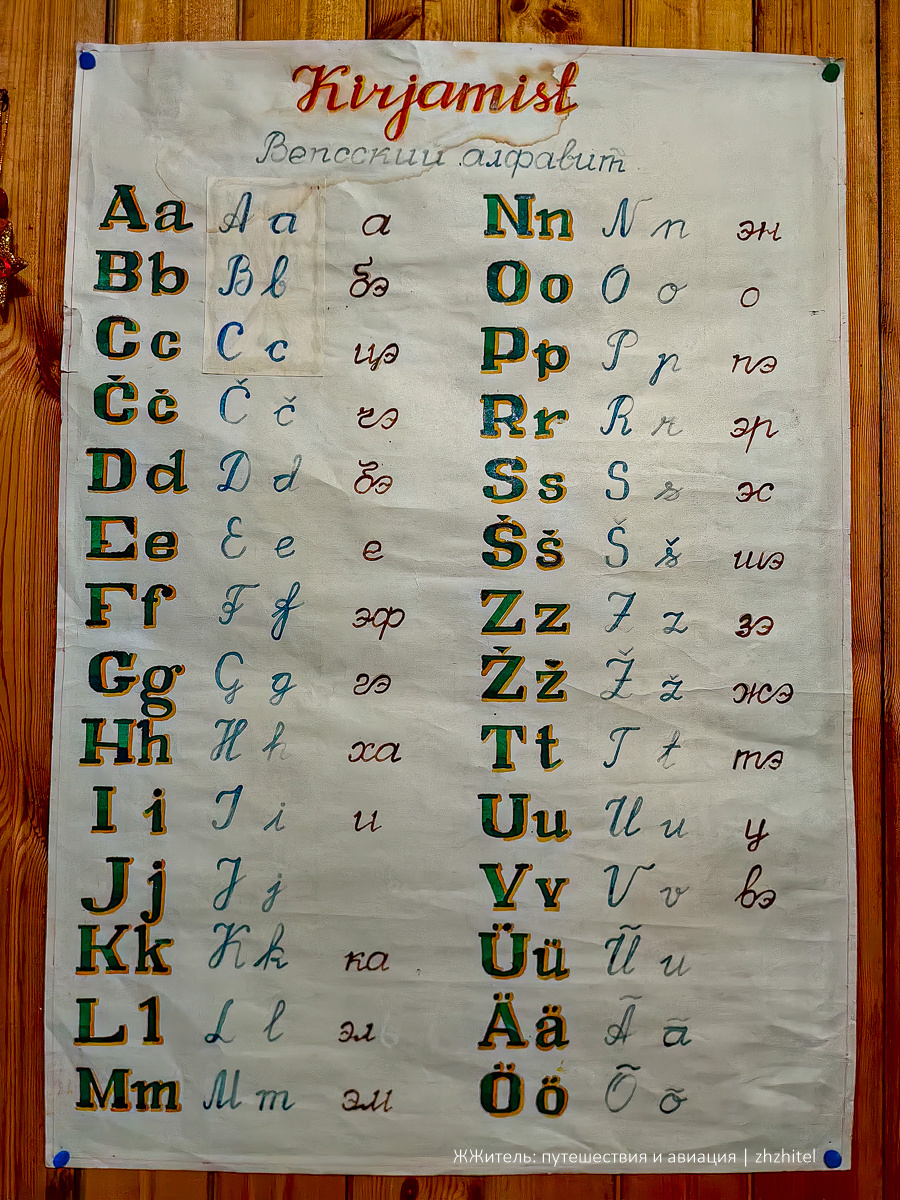 Kirjamist
Вепсский алфавит
Aa A a а
Bb B b бэ
Cc C c цэ
Čč Č č чэ
Dd D d бэ
Ee E e е
Ff F f эф
Gg G g гэ
Hh H h ха
I i I i и
Jj J j
Kk K k ка
Ll L l эл
Mm M m эм
Nn N n эн
Oo O o о
Pp P p пэ
Rr R r эр
Ss S s эс
Šš Š š шэ
Zz Z z зэ
Žž Ž ž жэ
Tt T t тэ
Uu U u у
Vv V v вэ
Üü Ũ u
Ää Ã ã
Öö Õ õ
ЖЖитель: путешествия и авиация | zhzhitel